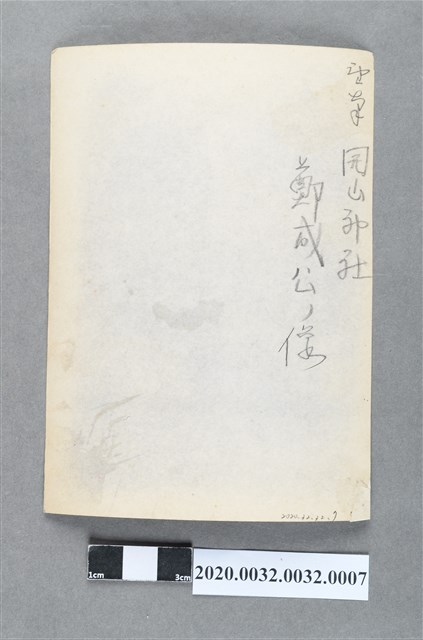 臺南 開山神社
鄭成公ノ像
2020.32.32.7
1cm
3cm
2020.0032.0032.0007